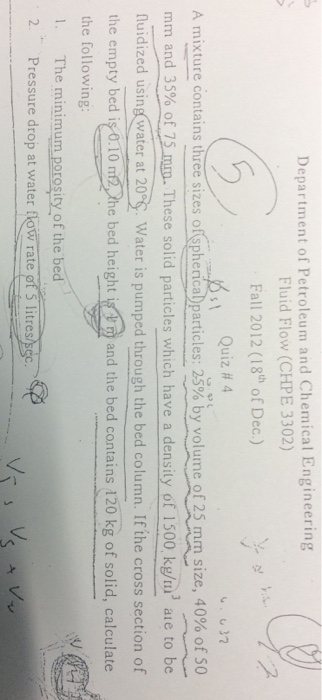 Department of Petroleum and Chemical Engineering
Fluid Flow (CHPE 3302)
Fall 2012 (18th of Dec.)
Quiz # 4
5
A mixture contains three sizes of spherical particles: 25% by volume of 25 mm size, 40% of 50
mm and 35% of 75 mm. These solid particles which have a density of 1500 kg/m³ are to be
fluidized using water at 20°C. Water is pumped through the bed column. If the cross section of
the empty bed is 0.10 m2, the bed height is 1 m and the bed contains 120 kg of solid, calculate
the following:
1. The minimum porosity of the bed
2. Pressure drop at water flow rate of 5 litres/sec.